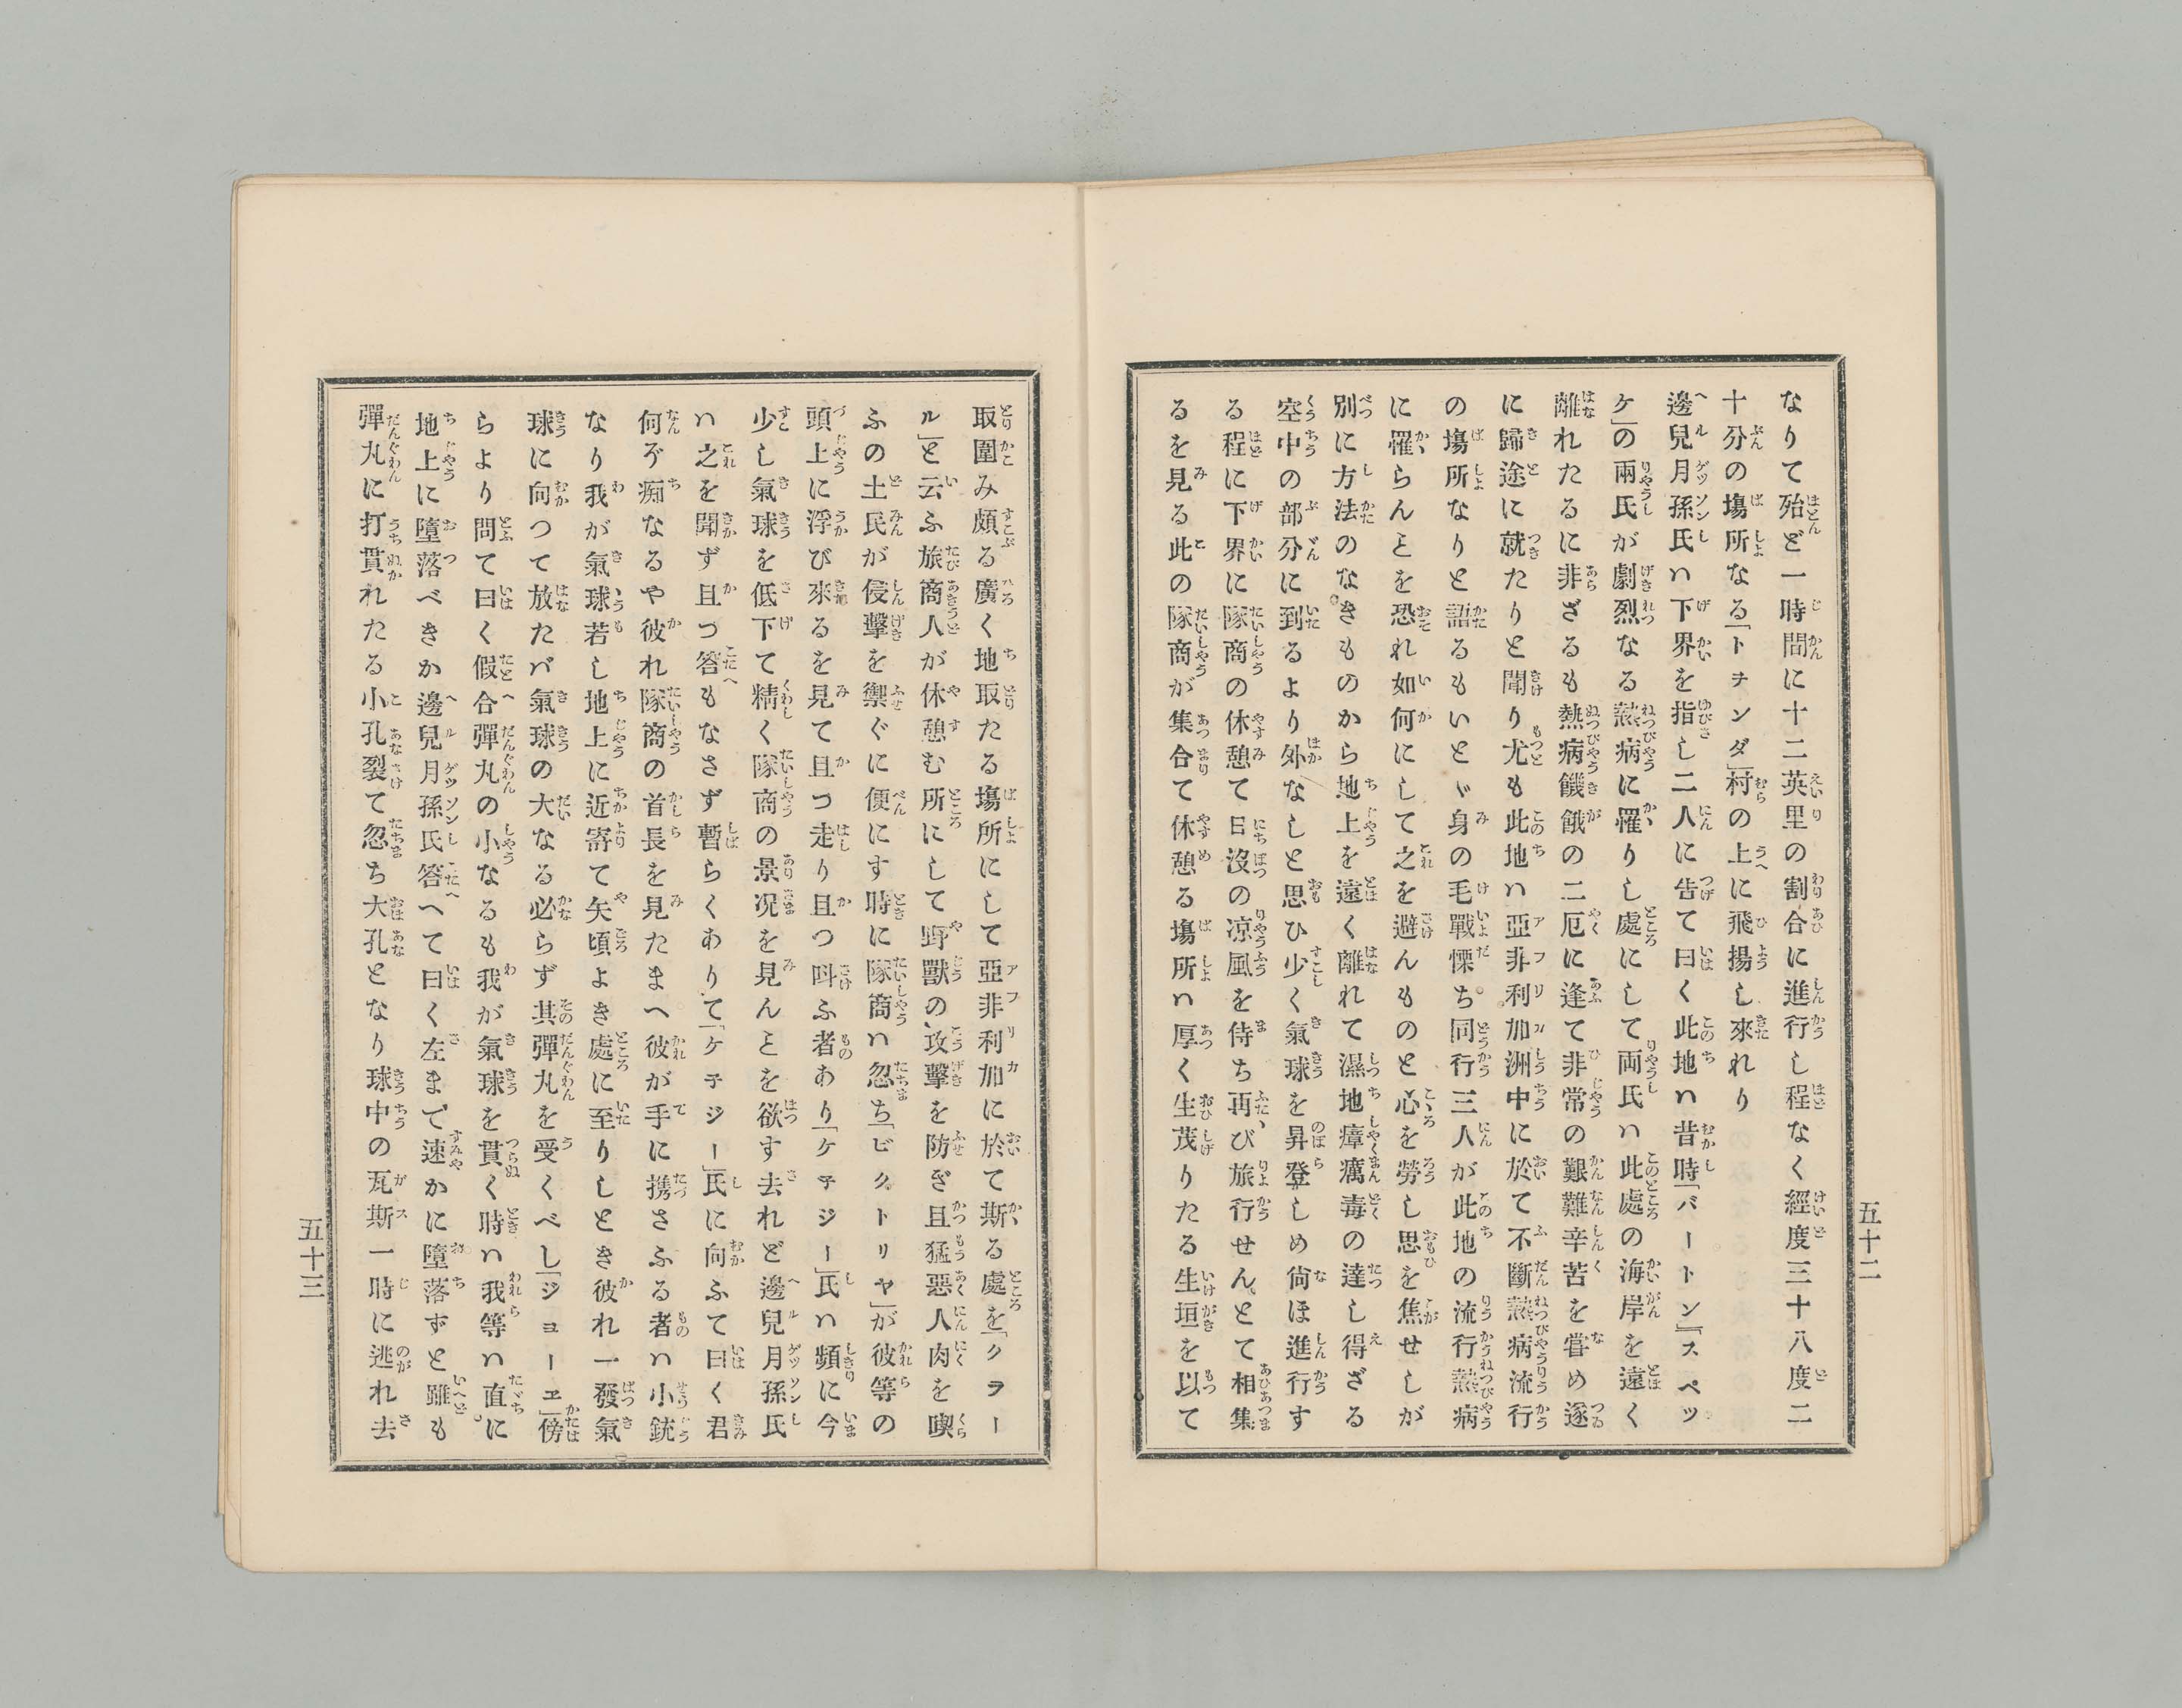 なりて殆ど一時間に十二英里の割合に進行し程なく經度三十八度二
十分の塲所なる「トチンダ」村の上に飛揚し來れり
邊兒月孫氏ハ下界を指し二人に告て曰く此地ハ昔時「バートン」「スペッ
ケ」の兩氏が劇烈なる熱病に罹りし處にして両氏ハ此處の海岸を遠く
離れたるに非ざるも熱病饑餓の二厄に逢て非常の艱難辛苦を甞め遂
に歸途に就たりと聞けり尤も此地ハ亞非利加洲中に於て不斷熱病流行
の塲所なりと語るもいとゞ身の毛戰慄ち同行三人が此地の流行熱病
に罹らんとを恐れ如何にして之を避んものと心を勞し思を焦せしが
別に方法のなきものから地上を遠く離れて濕地瘴癘毒の達し得ざる
空中の部分に到るより外なしと思ひ少しく氣球を昇登しめ尚ほ進行す
る程に下界に隊商の休憩て日沒の凉風を待ち再び旅行せんとて相集
るを見る此の隊商が集合て休憩る塲所ハ厚く生茂りたる生垣を以て
五十二
取圍み頗る廣く地取たる塲所にして亞非利加に於て斯る處を「クラー
ル」と云ふ旅商人が休憩む所にして野獸の攻擊を防ぎ且猛惡人肉を喫
ふの土民が侵擊を禦ぐに便にす時に隊商ハ忽ち「ビクトリヤ」が彼等の
頭上に浮び來るを見て且つ走り且つ呌ふ者あり「ケチジー」氏ハ頻に今
少し氣球を低下て精く隊商の景況を見んとを欲す去れど邊兒月孫氏
ハ之を聞ず且つ答もなさず暫らくありて「ケチジー」氏に向ふて曰く君
何ぞ痴なるや彼れ隊商の首長を見たまへ彼が手に携さふる者ハ小銃
なり我が氣球若し地上に近寄て矢頃よき處に至りしとき彼れ一發氣
球に向つて放たバ氣球の大なる必らず其彈丸を受くべし「ジョーヱ」傍
らより問て曰く假合彈丸の小なるも我が氣球を貫く時ハ我等ハ直に
地上に墮落べきか邊兒月孫氏答へて曰く左まで速かに墮落ずと雖も
彈丸に打貫れたる小孔裂て忽ち大孔となり球中の瓦斯一時に逃れ去
五十三